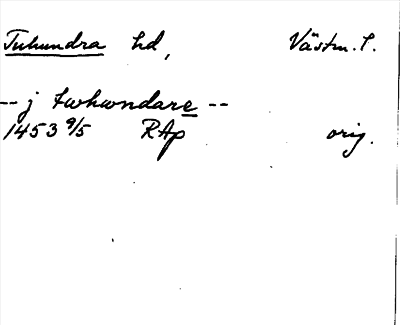 Tuhundra hd, Västm. l.
-- j twhwndare --
1453 9/5 RAp orig.